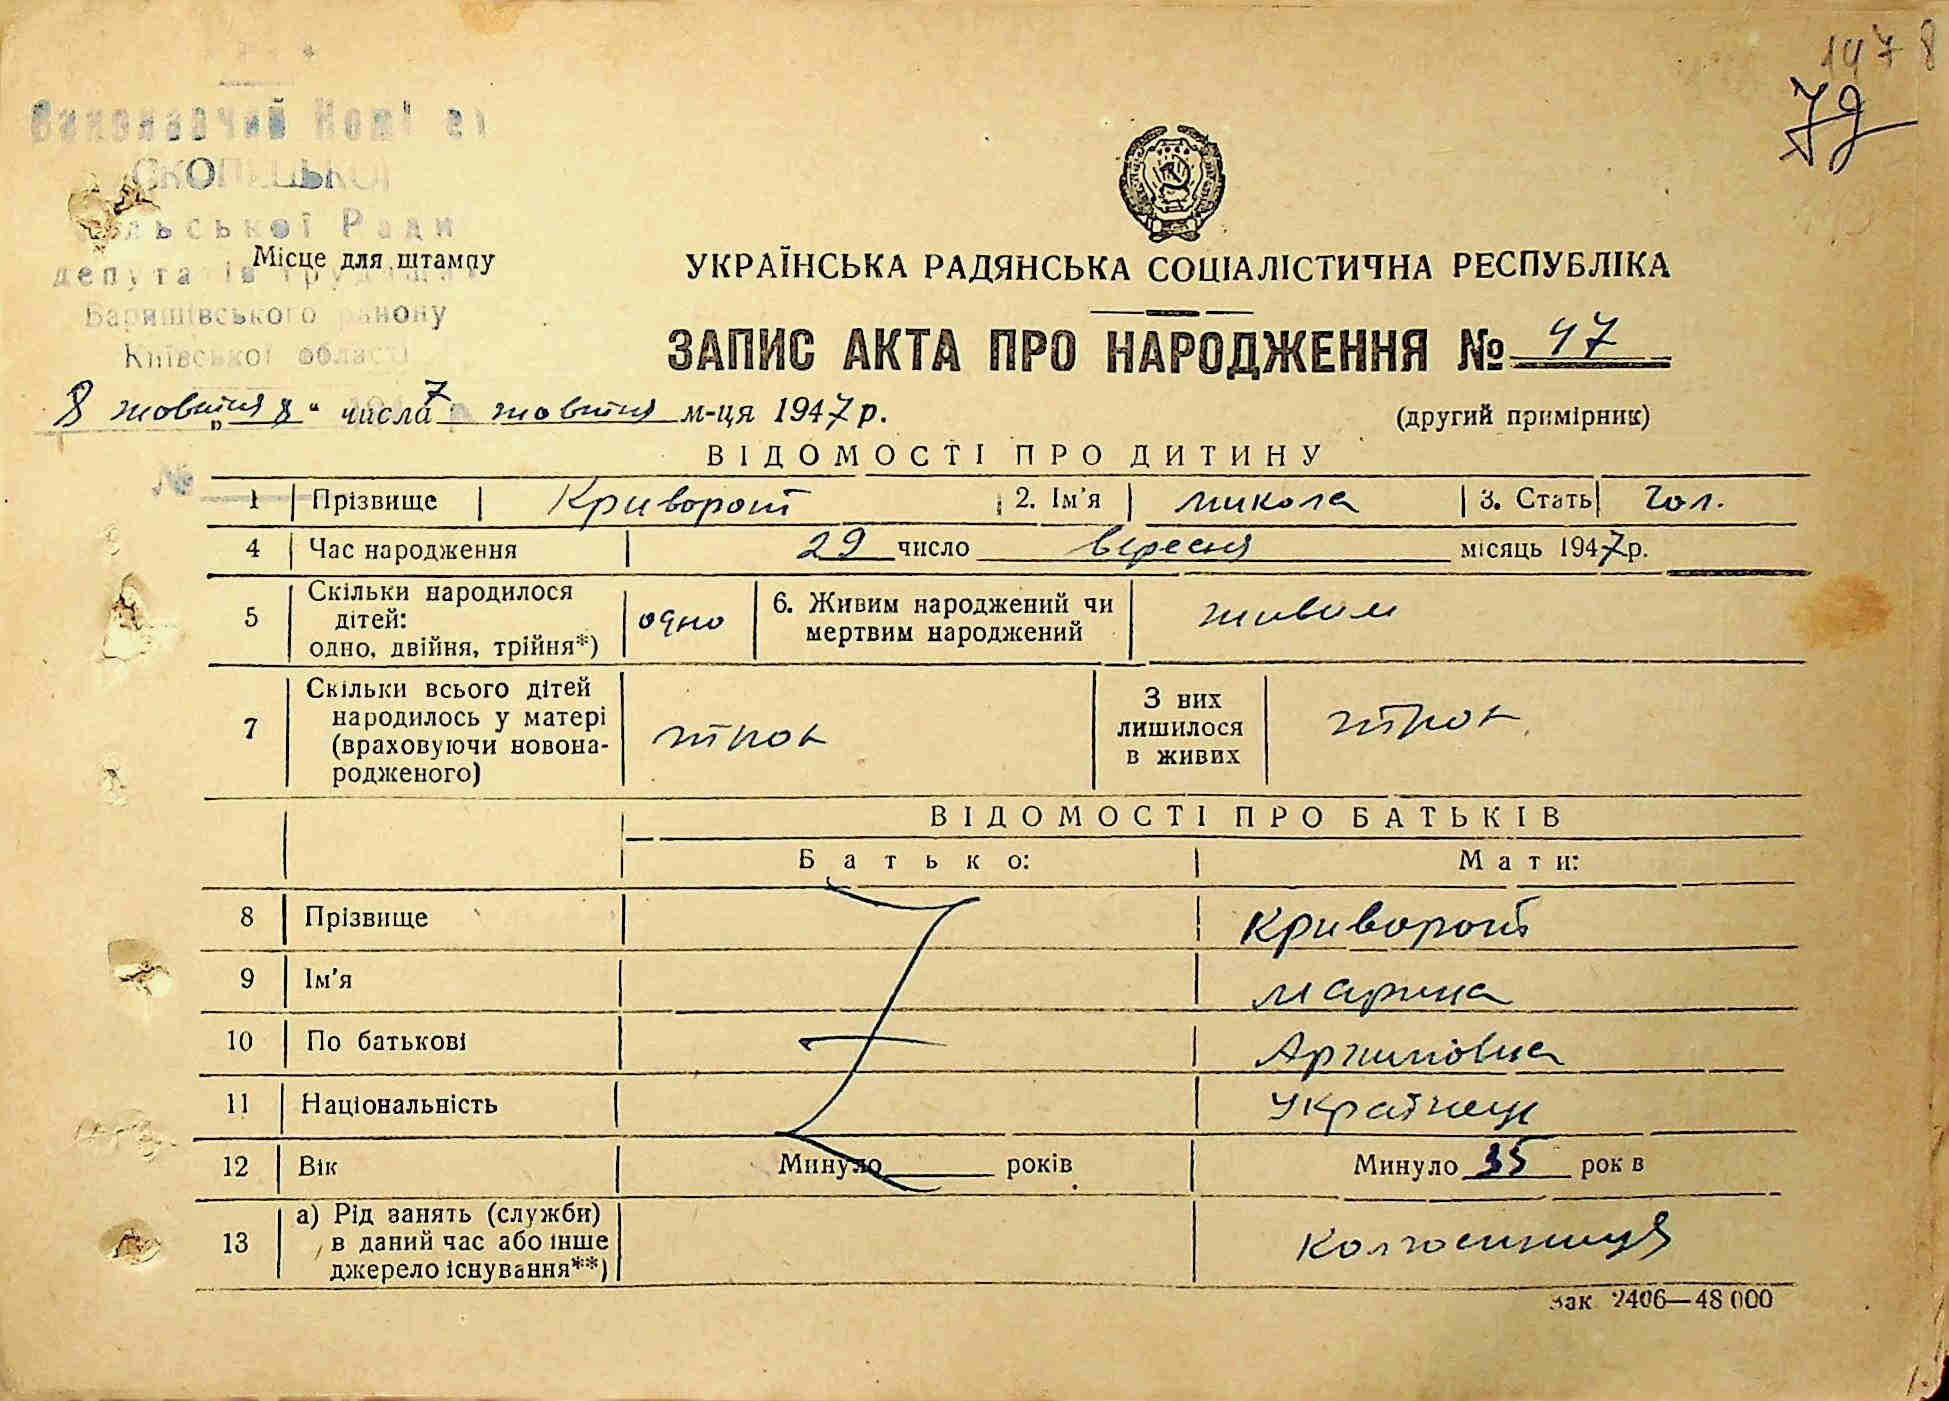 1978
79
Виконавчий Ком
СКОПЕЦЬКОЇ
Сільської Ради
депутатів трудящих
Баришівського району
Київської області
Місце для штампу
УКРАЇНСЬКА РАДЯНСЬКА СОЦІАЛІСТИЧНА РЕСПУБЛІКА
ЗАПИС АКТА ПРО НАРОДЖЕННЯ № 47
8 жовтня „8“ числа жовтня м-ця 1947 р.
(другий примірник)
ВІДОМОСТІ ПРО ДИТИНУ
№
1 Прізвище Криворот 2. Ім'я Микола 3. Стать чол.
4 Час народження 29 число вересня місяць 1947 р.
5 Скільки народилося дітей: одно, двійня, трійня*) одно 6. Живим народжений чи мертвим народжений живим
7 Скільки всього дітей народилось у матері (враховуючи новонародженого) трох З них лишилося в живих трох
ВІДОМОСТІ ПРО БАТЬКІВ
Батько: Мати:
8 Прізвище Криворот
9 Ім'я Марина
10 По батькові
11 Національність Українець
12 Вік Минуло років Минуло 35 рок в
13 а) Рід занять (служби) в даний час або інше джерело існування**) Колгоспниця
Зак 2406—48 000